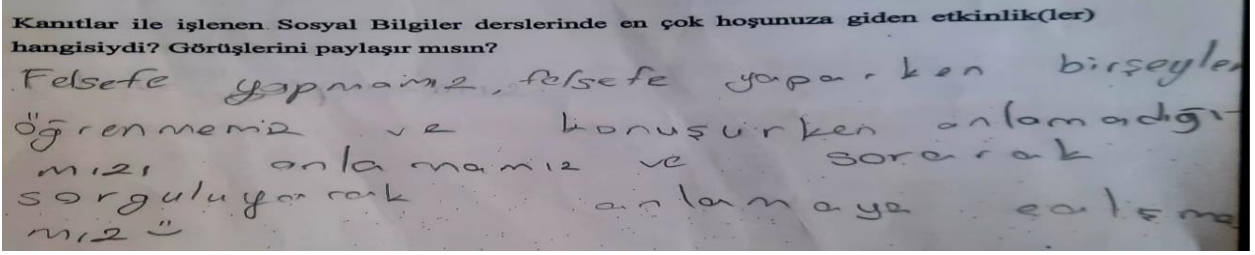 Kanıtlar ile işlenen Sosyal Bilgiler derslerinde en çok hoşunuza giden etkinlik(ler)
hangisiydi? Görüşlerini paylaşır mısın?
Felsefe yapmamız, felsefe yaparken birşeyler
öğrenmemiz ve konuşurken anlamadığı-
mızı anlamamız ve sorarak
sorguluyarak anlamaya çalışma
mız